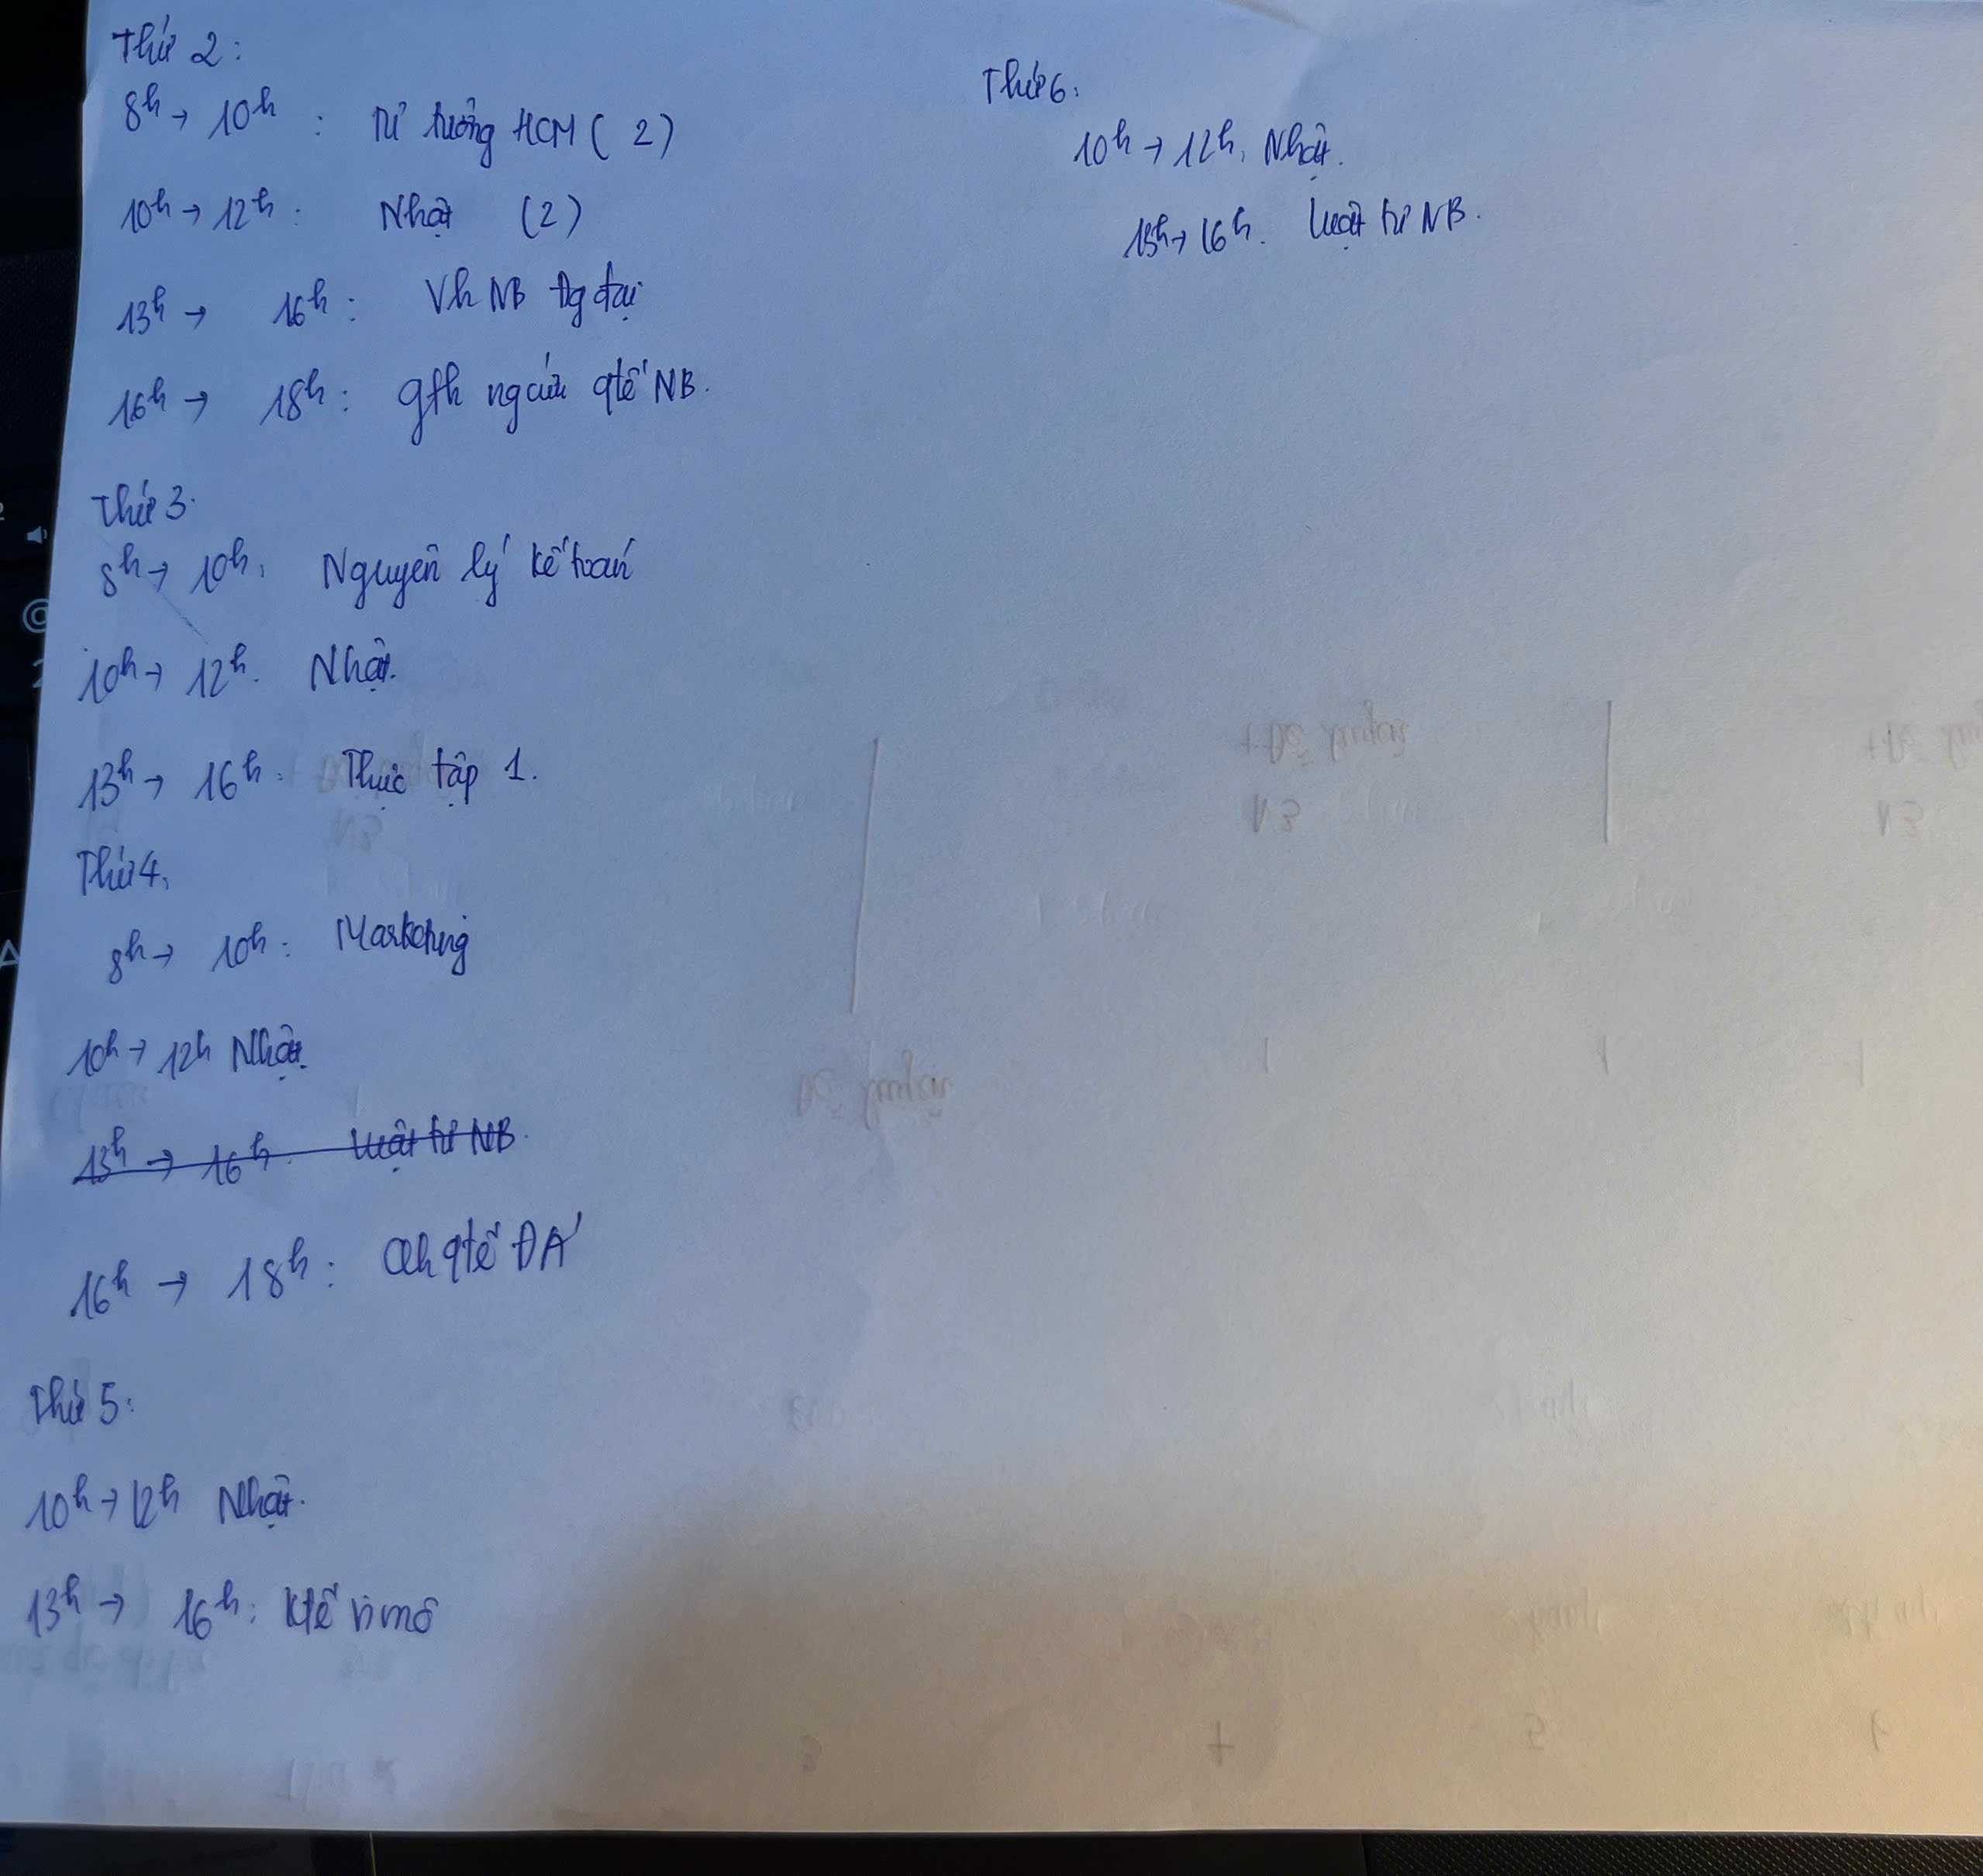 Thứ 2:
8h → 10h : Tư tưởng HCM ( 2 )
10h → 12h : Nhật (2)
13h → 16h : Vh NB đg đại
16h → 18h : gth ngcứu qtế NB.
Thứ 3.
8h → 10h. Nguyên lý kế toán
10h → 12h. Nhật.
13h → 16h. Thực tập 1.
Thứ 4.
8h → 10h : Marketing
10h → 12h Nhật.
13h → 16h. Luật tư NB.
16h → 18h : Qh qtế ĐÁ
Thứ 5:
10h → 12h Nhật.
13h → 16h : Ktế vi mô
Thứ 6.
10h → 12h. Nhật.
13h → 16h. Luật tư NB.